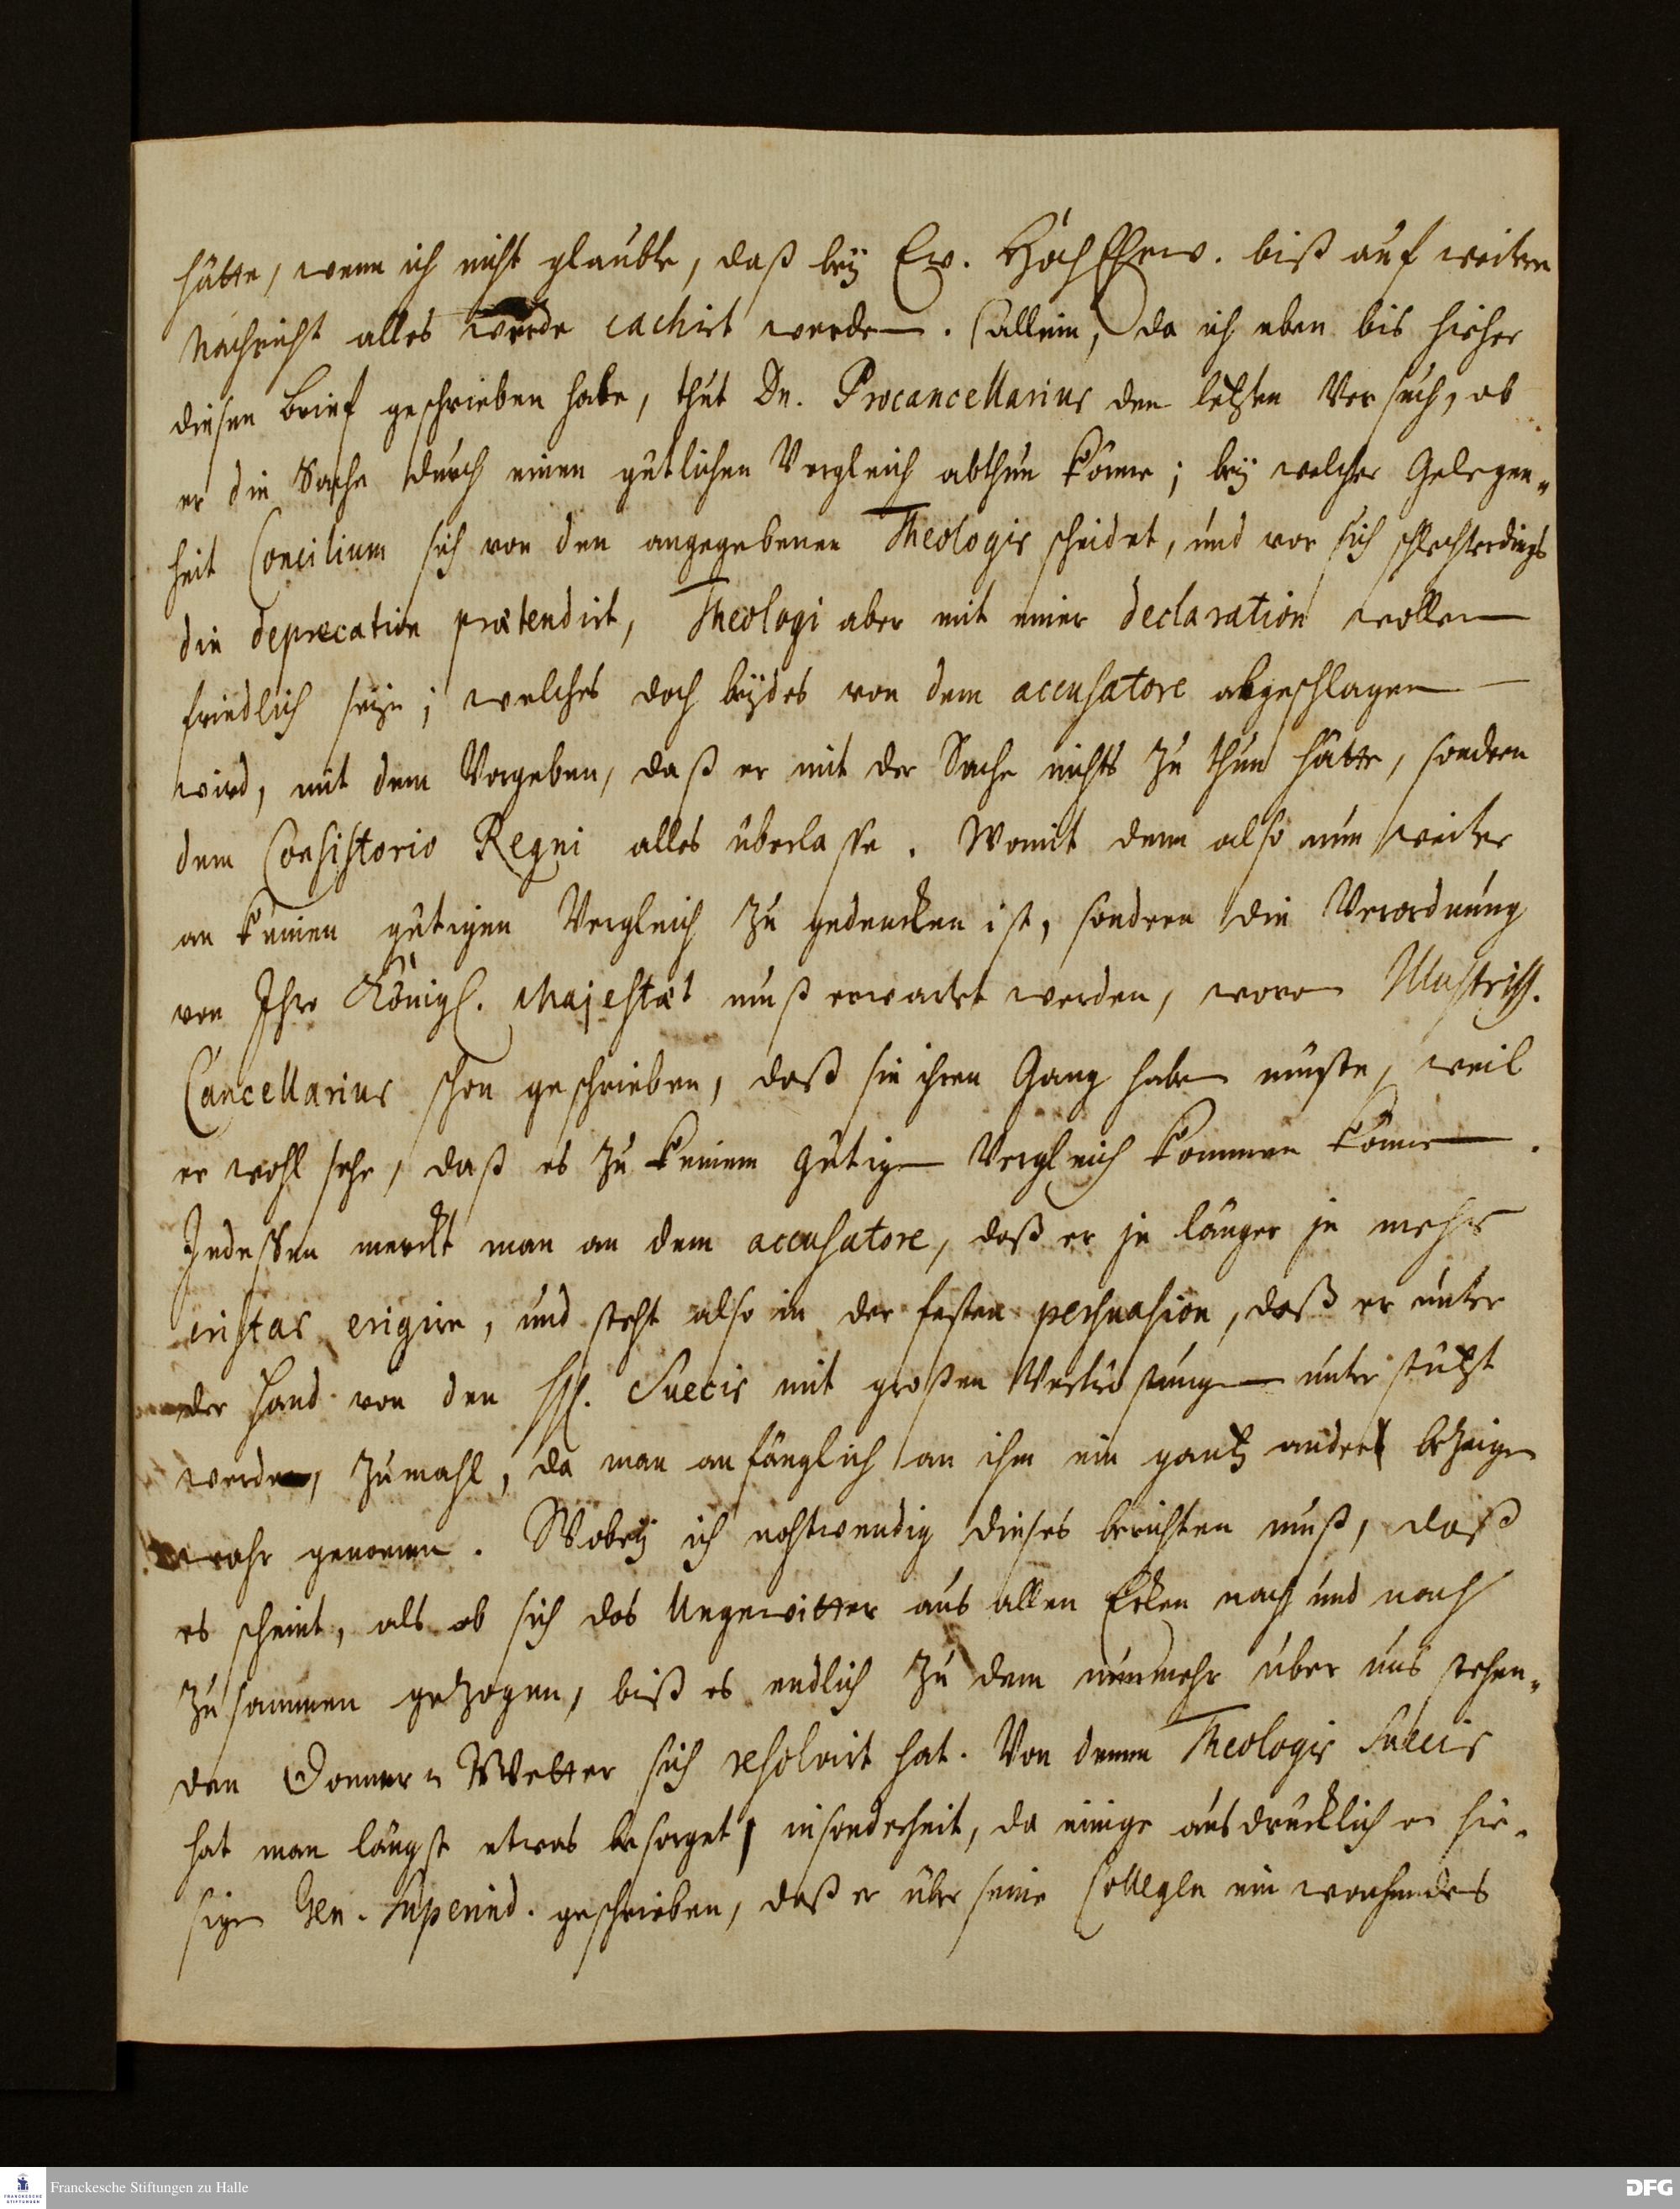 hätte, wenn ich nicht glaubte, daß bey Ew. HochEhrw. biß auf weitere
Nachricht alles werde cachirt werden. Allein, da ich eben bis hieher
diesen brief geschrieben habe, thut Dn. Procancellarius den letzten Versuch, ob
er die Sache durch einen gütlichen Vergleich abthun könne; bey welcher Gelegen„
heit Concilium sich von den angegebenen Theologis scheidet, und vor sich schlechterdings
die deprecation prætendirt, Theologi aber mit einer declaration wollen
friedlich seyn; welches doch beydes von dem accusatore abgeschlagen
wird, mit dem Vorgeben, daß er mit der Sache nichts zu thun hätte, sondern
dem Consistorio Regni alles überlasse. Womit denn also nun weiter
an keinen gütigen Vergleich zu gedencken ist, sondern die Verordnung
von Ihro Königl. Majestæt muß erwartet werden, wovon Illustriss.
Cancellarius schon geschrieben, daß sie ihren Gang haben müste, weil
er wohl sehe, daß es zu keinem gütigen Vergleich kommen könne.
Indessen merckt man an dem accusatore, daß er je länger je mehr
cristas erigire, und steht also in der festen persuasion, daß er unter
der Hand von den HH. Suecis mit großen Vertröstungen unterstützt
werden, zumahl, da man anfänglich an ihm ein gantz anders bezeigen
wahr genommen. Wobey ich nohtwendig dieses berichten muß, daß
es scheint, als ob sich das Ungewitter aus allen Ecken nach und nach
zusammen gezogen, biß es endlich zu dem nunmehr über uns stehen„
den Donner-Wetter sich resolvirt hat. Von denen Theologis Suecis
hat man längst etwas besorget, insonderheit, da einige ausdrücklich an hie-
sigen Gen. Superind. geschrieben, daß er über seine Collegen ein wachendes
Franckesche Stiftungen zu Halle
FRANCKESCHE STIFTUNGEN
DFG